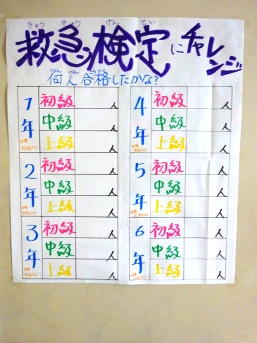 きゅう きゅう けん てい
救急検定にチャレンジ
何人合格したかな?
1年
初級 人
中級 人
上級 人
2年
初級 人
中級 人
上級 人
3年
初級 人
中級 人
上級 人
4年
初級 人
中級 人
上級 人
5年
初級 人
中級 人
上級 人
6年
初級 人
中級 人
上級 人